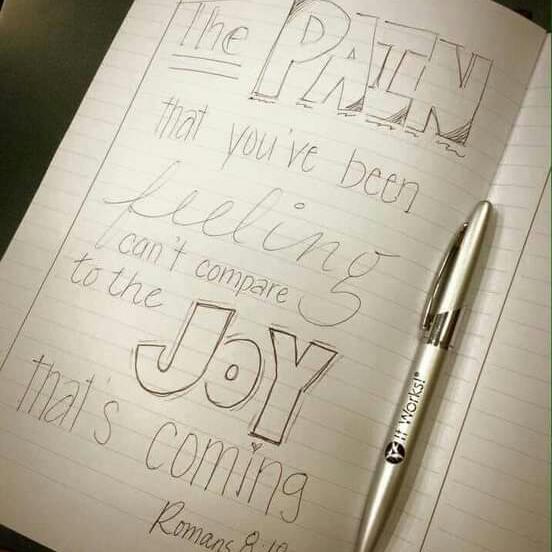 The PAIN
that you've been
feeling
can't compare
to the JOY
that's coming
Romans
It Works!